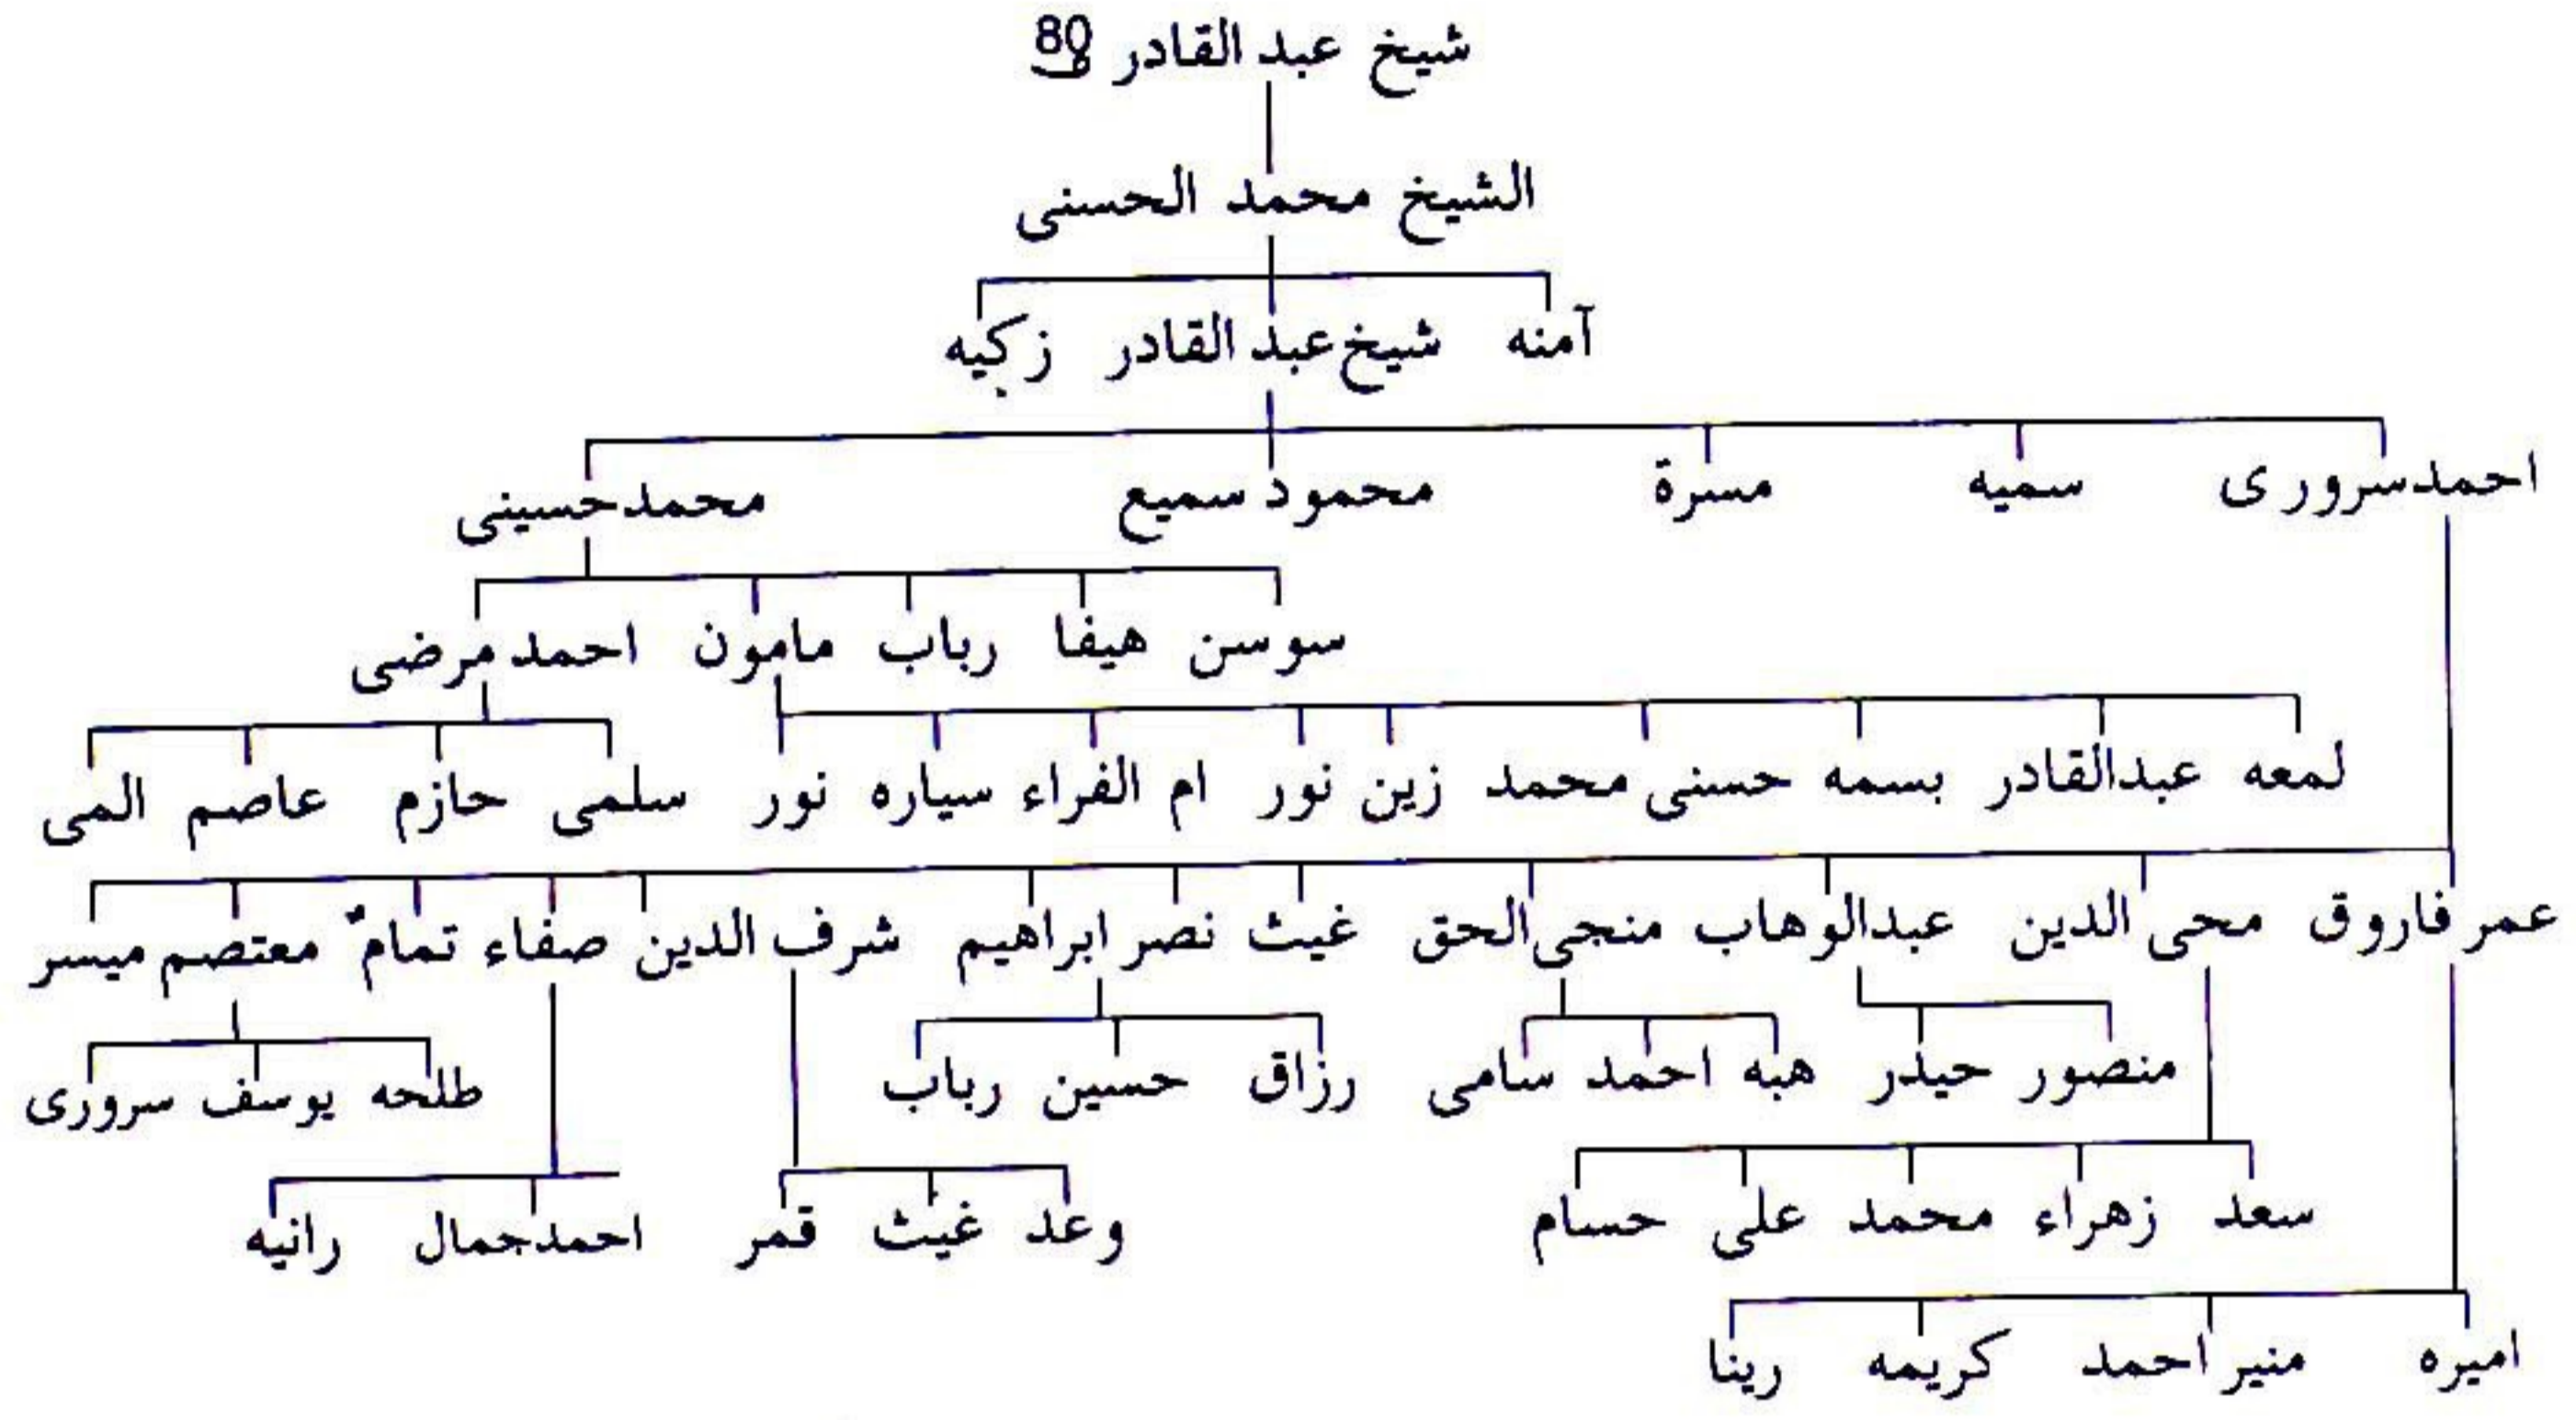 شيخ عبد القادر 80
الشيخ محمد الحسنى
آمنه شيخ عبد القادر زكيه
احمد سرورى سميه مسرة محمود سميع محمد حسينى
سوسن هيفا رباب مامون احمد مرضى
لمعه عبدالقادر بسمه حسنى محمد زين نور ام الفراء سياره نور سلمى حازم عاصم المى
عمر فاروق محى الدين عبدالوهاب منجى الحق غيث نصر ابراهيم شرف الدين صفاء تمام معتصم ميسر
منصور حيدر هبه احمد سامى رزاق حسين رباب طلحه يوسف سرورى
سعد زهراء محمد على حسام وعد غيث قمر احمد جمال رانيه
اميره منير احمد كريمه رينا